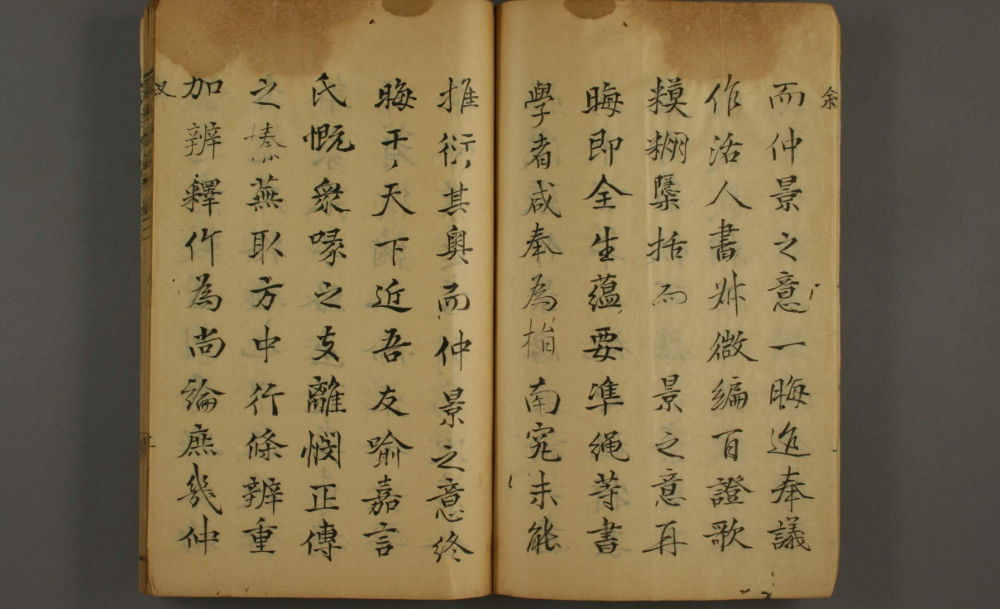 余
而仲景之意一晦迨奉議
作活人書叔微編百證歌
糢糊檃括而景之意再
晦即全生蘊要準繩等書
學者咸奉為指南究未能
推衍其奧而仲景之意終
晦于天下近吾友喻嘉言
氏慨衆喙之支離憫正傳
之榛蕪取方中行條辨重
加辨釋作為尚論庶幾仲